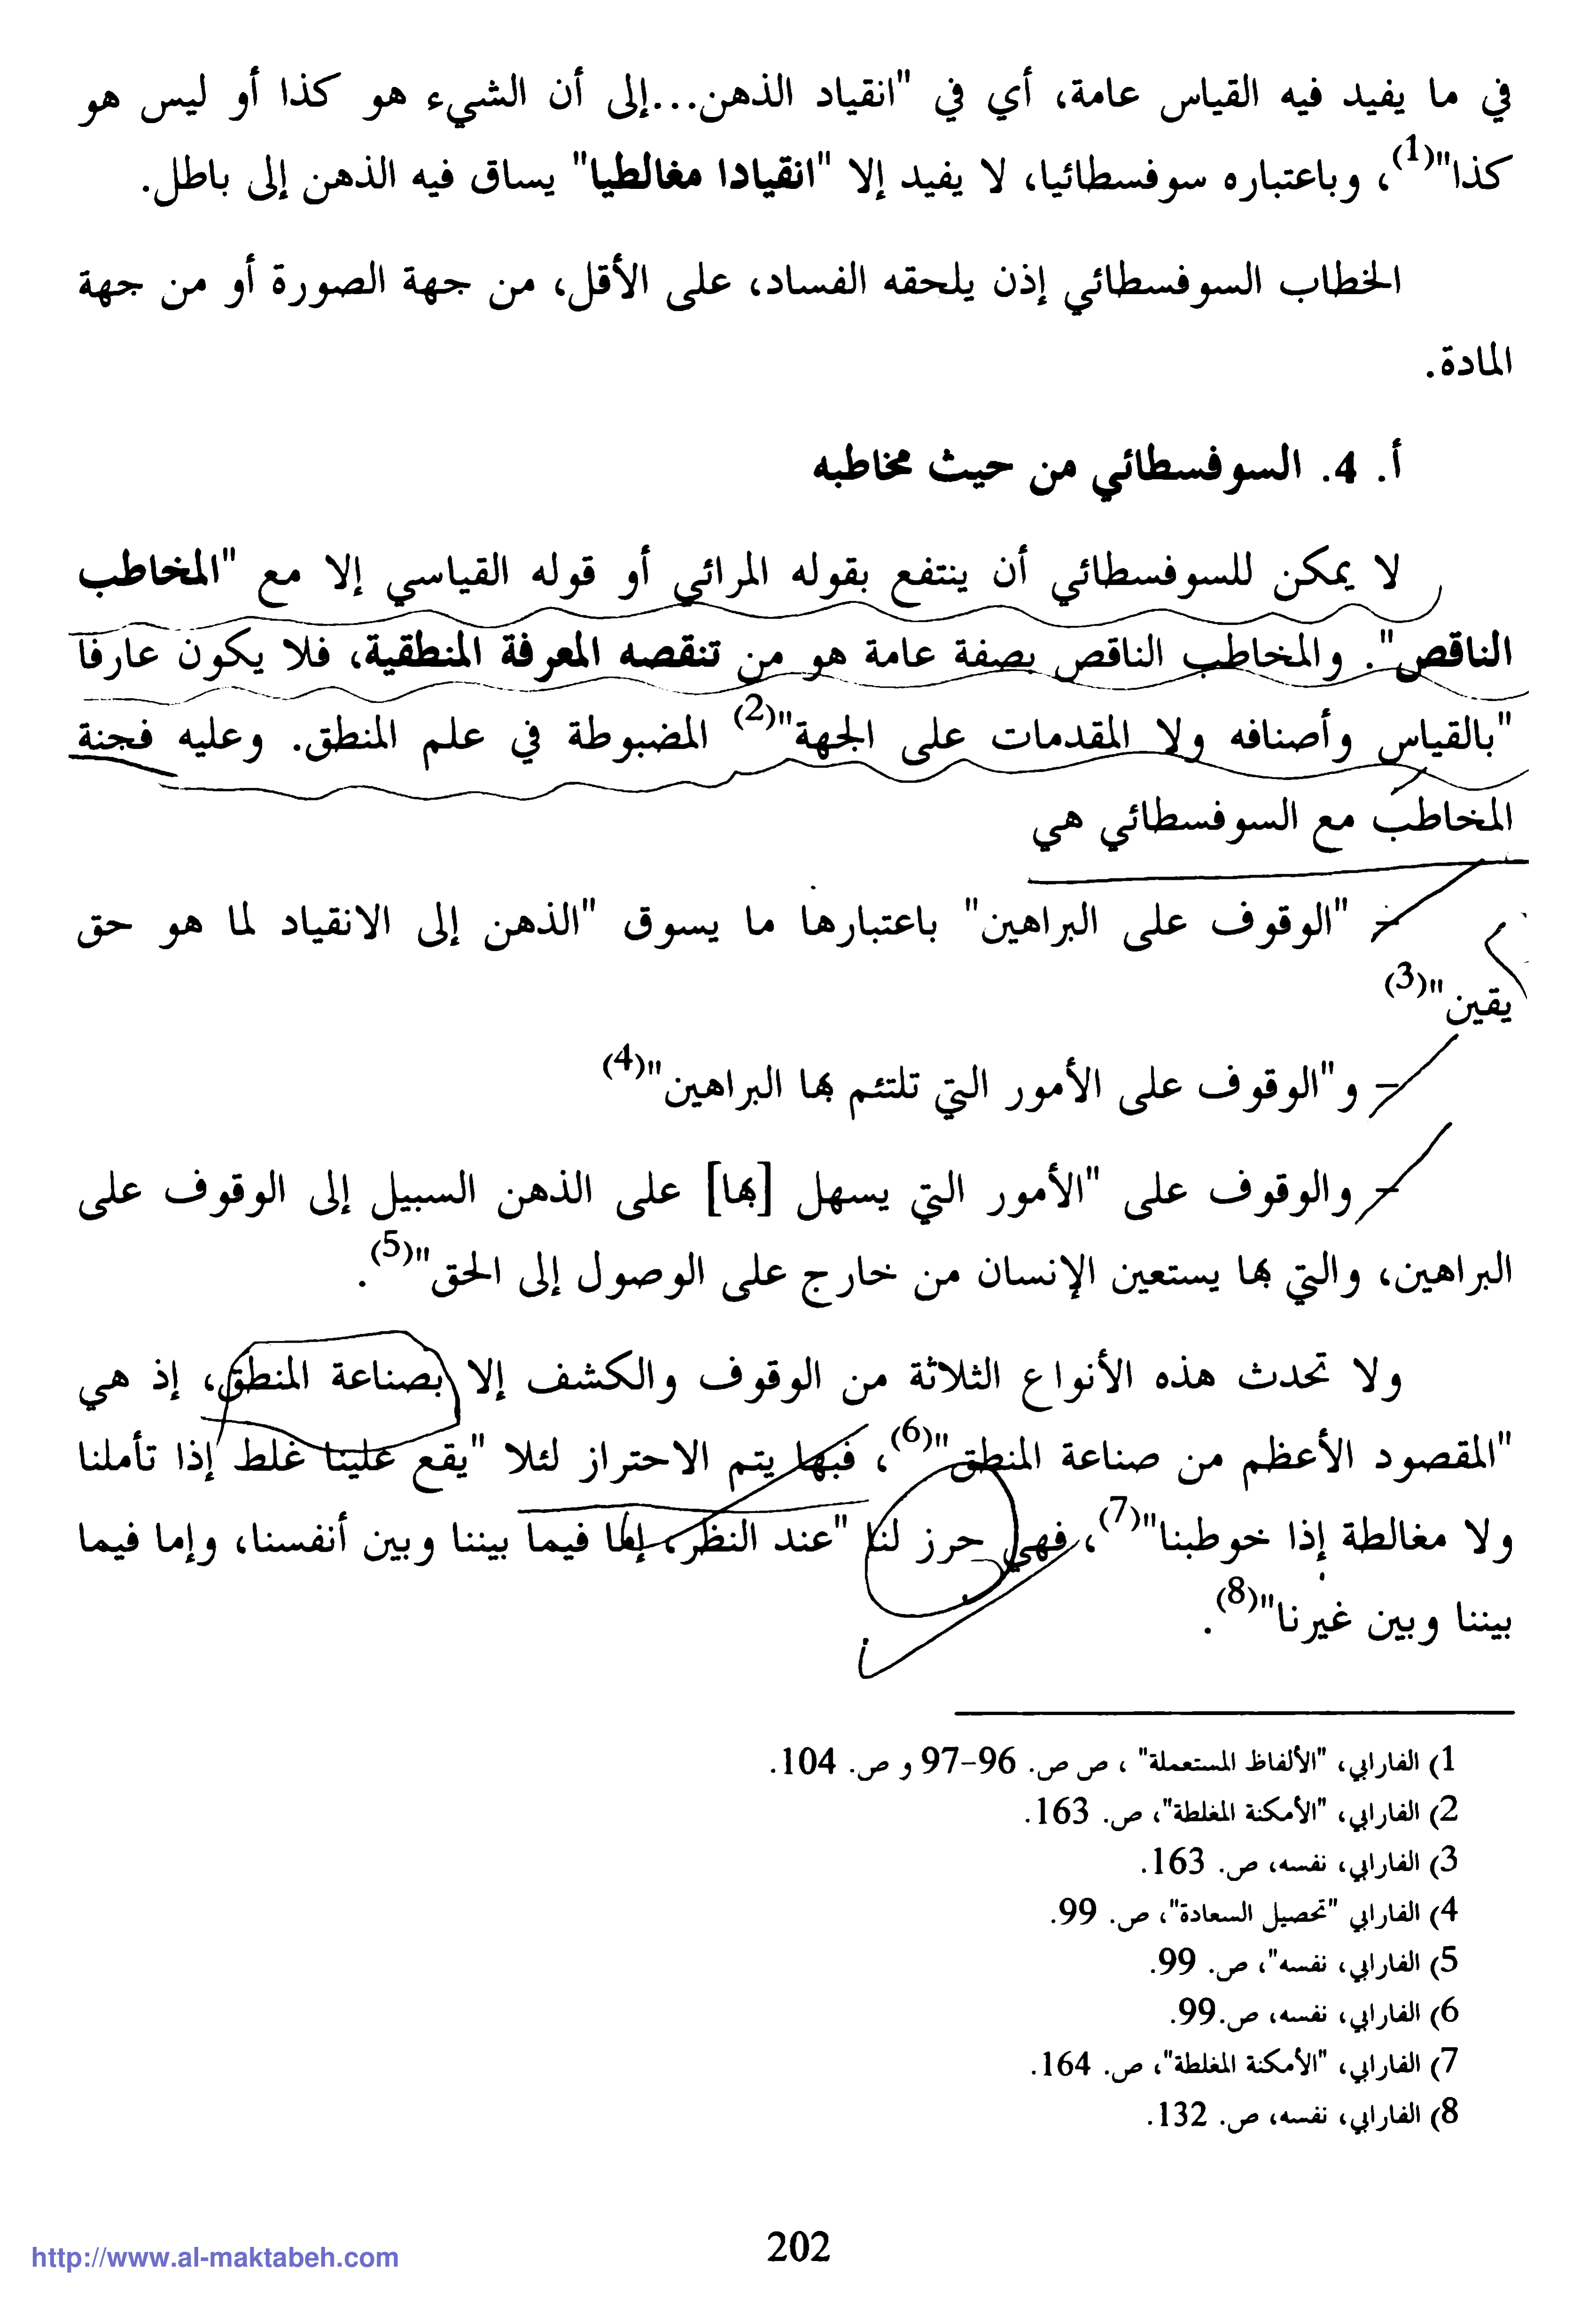 في ما يفيد فيه القياس عامة، أي في "انقياد الذهن...إلى أن الشيء هو كذا أو ليس هو
كذا"(1)، وباعتباره سوفسطائيا، لا يفيد إلا "انقيادا مغالطيا" يساق فيه الذهن إلى باطل.
الخطاب السوفسطائي إذن يلحقه الفساد، على الأقل، من جهة الصورة أو من جهة
المادة.
أ. 4. السوفسطائي من حيث مخاطبه
لا يمكن للسوفسطائي أن ينتفع بقوله المرائي أو قوله القياسي إلا مع "المخاطب
الناقص". والمخاطب الناقص بصفة عامة هو من تنقصه المعرفة المنطقية، فلا يكون عارفا
"بالقياس وأصنافه ولا المقدمات على الجهة"(2) المضبوطة في علم المنطق. وعليه فجنة
المخاطَب مع السوفسطائي هي
– "الوقوف على البراهين" باعتبارها ما يسوق "الذهن إلى الانقياد لما هو حق
يقين"(3)
– و"الوقوف على الأمور التي تلتئم بها البراهين"(4)
– والوقوف على "الأمور التي يسهل [بها] على الذهن السبيل إلى الوقوف على
البراهين، والتي بها يستعين الإنسان من خارج على الوصول إلى الحق"(5).
ولا تحدث هذه الأنواع الثلاثة من الوقوف والكشف إلا بصناعة المنطق، إذ هي
"المقصود الأعظم من صناعة المنطق"(6)، فبها يتم الاحتراز لئلا "يقع علينا غلط إذا تأملنا
ولا مغالطة إذا خوطبنا"(7)، فهي حرز لنا "عند النظر، إما فيما بيننا وبين أنفسنا، وإما فيما
بيننا وبين غيرنا"(8).
1) الفارابي، "الألفاظ المستعملة" ، ص ص. 96-97 و ص. 104.
2) الفارابي، "الأمكنة المغلطة"، ص. 163.
3) الفارابي، نفسه، ص. 163.
4) الفارابي "تحصيل السعادة"، ص. 99.
5) الفارابي، نفسه"، ص. 99.
6) الفارابي، نفسه، ص.99.
7) الفارابي، "الأمكنة المغلطة"، ص. 164.
8) الفارابي، نفسه، ص. 132.
202
http://www.al-maktabeh.com